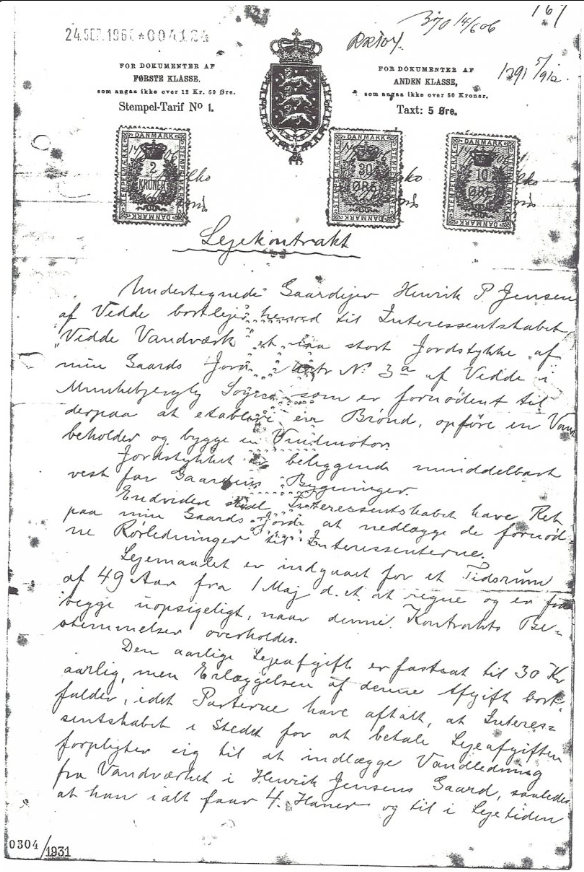 167
370 14/606
24.SEP.196 *004124
1291 5/912
FOR DOKUMENTER AF
FØRSTE KLASSE,
som angaa ikke over 12 Kr. 50 Øre.
Stempel-Tarif No 1.
FOR DOKUMENTER AF
ANDEN KLASSE,
som angaa ikke over 50 Kroner.
Taxt: 5 Øre.
DANMARK
2
KRONER
DANMARK
DANMARK
30
ØRE
DANMARK
DANMARK
10
ØRE
DANMARK
Lejekontrakt
Undertegnede Gaardejer Henrik P Jensen
af Vedde bortlejer herved til Interessentskabet
"Vedde Vandværk" et saa stort Jordstykke af
min Gaards Jord Matr No. 3a af Vedde i
Munkebjergby Sogn som er fornødent til
derpaa at etablere en Brønd, opføre en Vand
beholder og bygge en Vindmotor.
Jordstykket er beliggende umiddelbart
vest for Gaardens Bygninger.
Endvidere skal Interessentskabet have Ret
paa min Gaards Jorde at nedlægge de fornød-
ne Rørledninger til Interessenterne.
Lejemaalet er indgaaet for et Tidsrum
af 49 Aar fra 1 Maj d. A. at regne og er for
begge uopsigeligt, naar denne Kontrakts Be-
stemmelser overholdes.
Den aarlige Lejeafgift er fastsat til 30 Kr
aarlig, men Erlæggelsen af denne Afgift bort-
falder, idet Parterne have aftalt, at Interes-
sentskabet i Stedet for at betale Lejeafgiften
forpligter sig til at indlægge Vandledning
fra Vandværket i Henrik Jensens Gaard, saaledes
at han ialt faar 4 Haner og til i Lejetiden
0304/1931